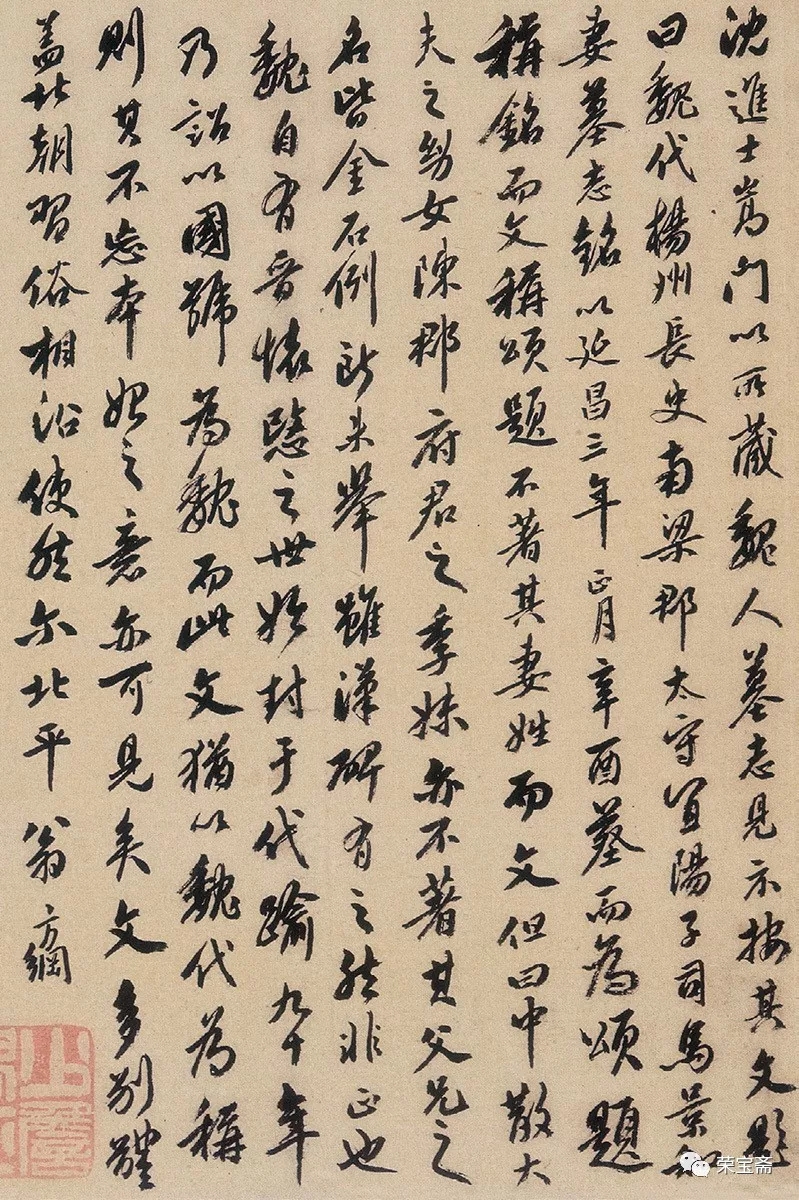 沈進士嵩門以所藏魏人墓志見示按其文題
曰魏代楊州長史南梁郡太守宜陽子司馬景和
妻墓志銘以延昌三年正月辛酉葬而為頌題
稱銘而文稱頌題不著其妻姓而文但曰中散大
夫之幼女陳郡府君之季妹亦不著其父兄之
名皆金石例所未舉雖漢碑有之然非正也
魏自有晉懷愍之世始封于代踰九十年
乃詔以國號為魏而此文猶以魏代為稱
則其不忘本始之意亦可見矣文多別體
蓋北朝習俗相沿使然尔北平翁方綱
荣宝斋